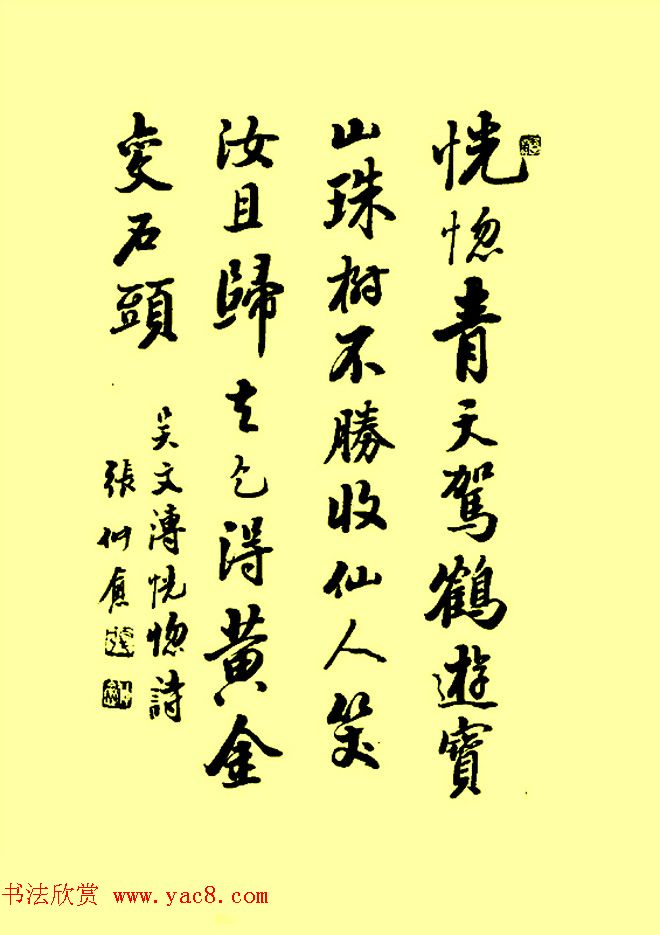 恍惚青天駕鶴遊寶
山珠樹不勝收仙人笑
汝且歸去乞得黄金
变石頭
吴文溥恍惚詩
張仲愈
书法欣赏 www.yac8.com